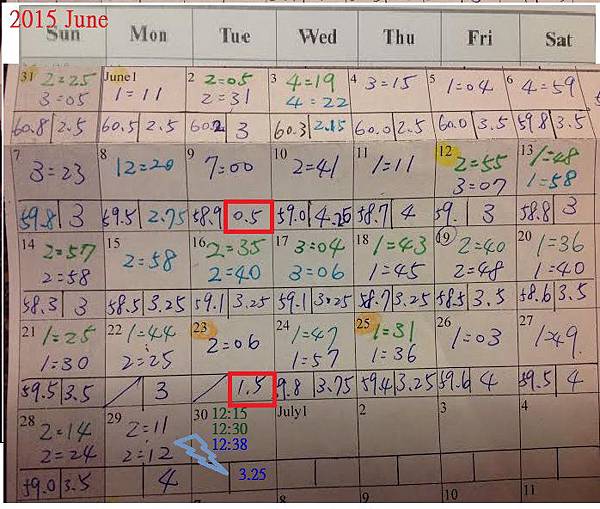 2015 June
Sun Mon Tue Wed Thu Fri Sat
31 2=25 June1 2 2=05 3 4=19 4 3=15 5 1=04 6 4=59
3=05 1=11 2=31 4=22
60.8 2.5 60.5 2.5 60.2 3 60.3 2.15 60.0 2.5 60.0 3.5 59.8 3.5
7 3=23 8 12=20 9 7=00 10 2=41 11 1=11 12 2=55 13 1=48
3=07 1=58
59.8 3 59.5 2.75 58.9 0.5 59.0 4.25 58.7 4 59. 3 58.8 3
14 2=57 15 2=58 16 2=35 17 3=04 18 1=43 19 2=40 20 1=36
2=58 2=40 3=06 1=45 2=48 1=40
58.3 3 58.5 3.25 59.1 3.25 59.1 3.25 58.7 3.25 58.5 3.5 58.6 3.5
21 1=25 22 1=44 23 2=06 24 1=47 25 1=31 26 1=03 27 1=49
1=30 2=25 1=57 1=36
59.5 3.5 3 1.5 9.8 3.75 59.4 3.25 59.6 4 59.5 4
28 2=14 29 2=11 30 12:15 July1 2 3 4
2=24 2=12 12:30
12:38
59.0 3.5 4 3.25
8 9 10 11